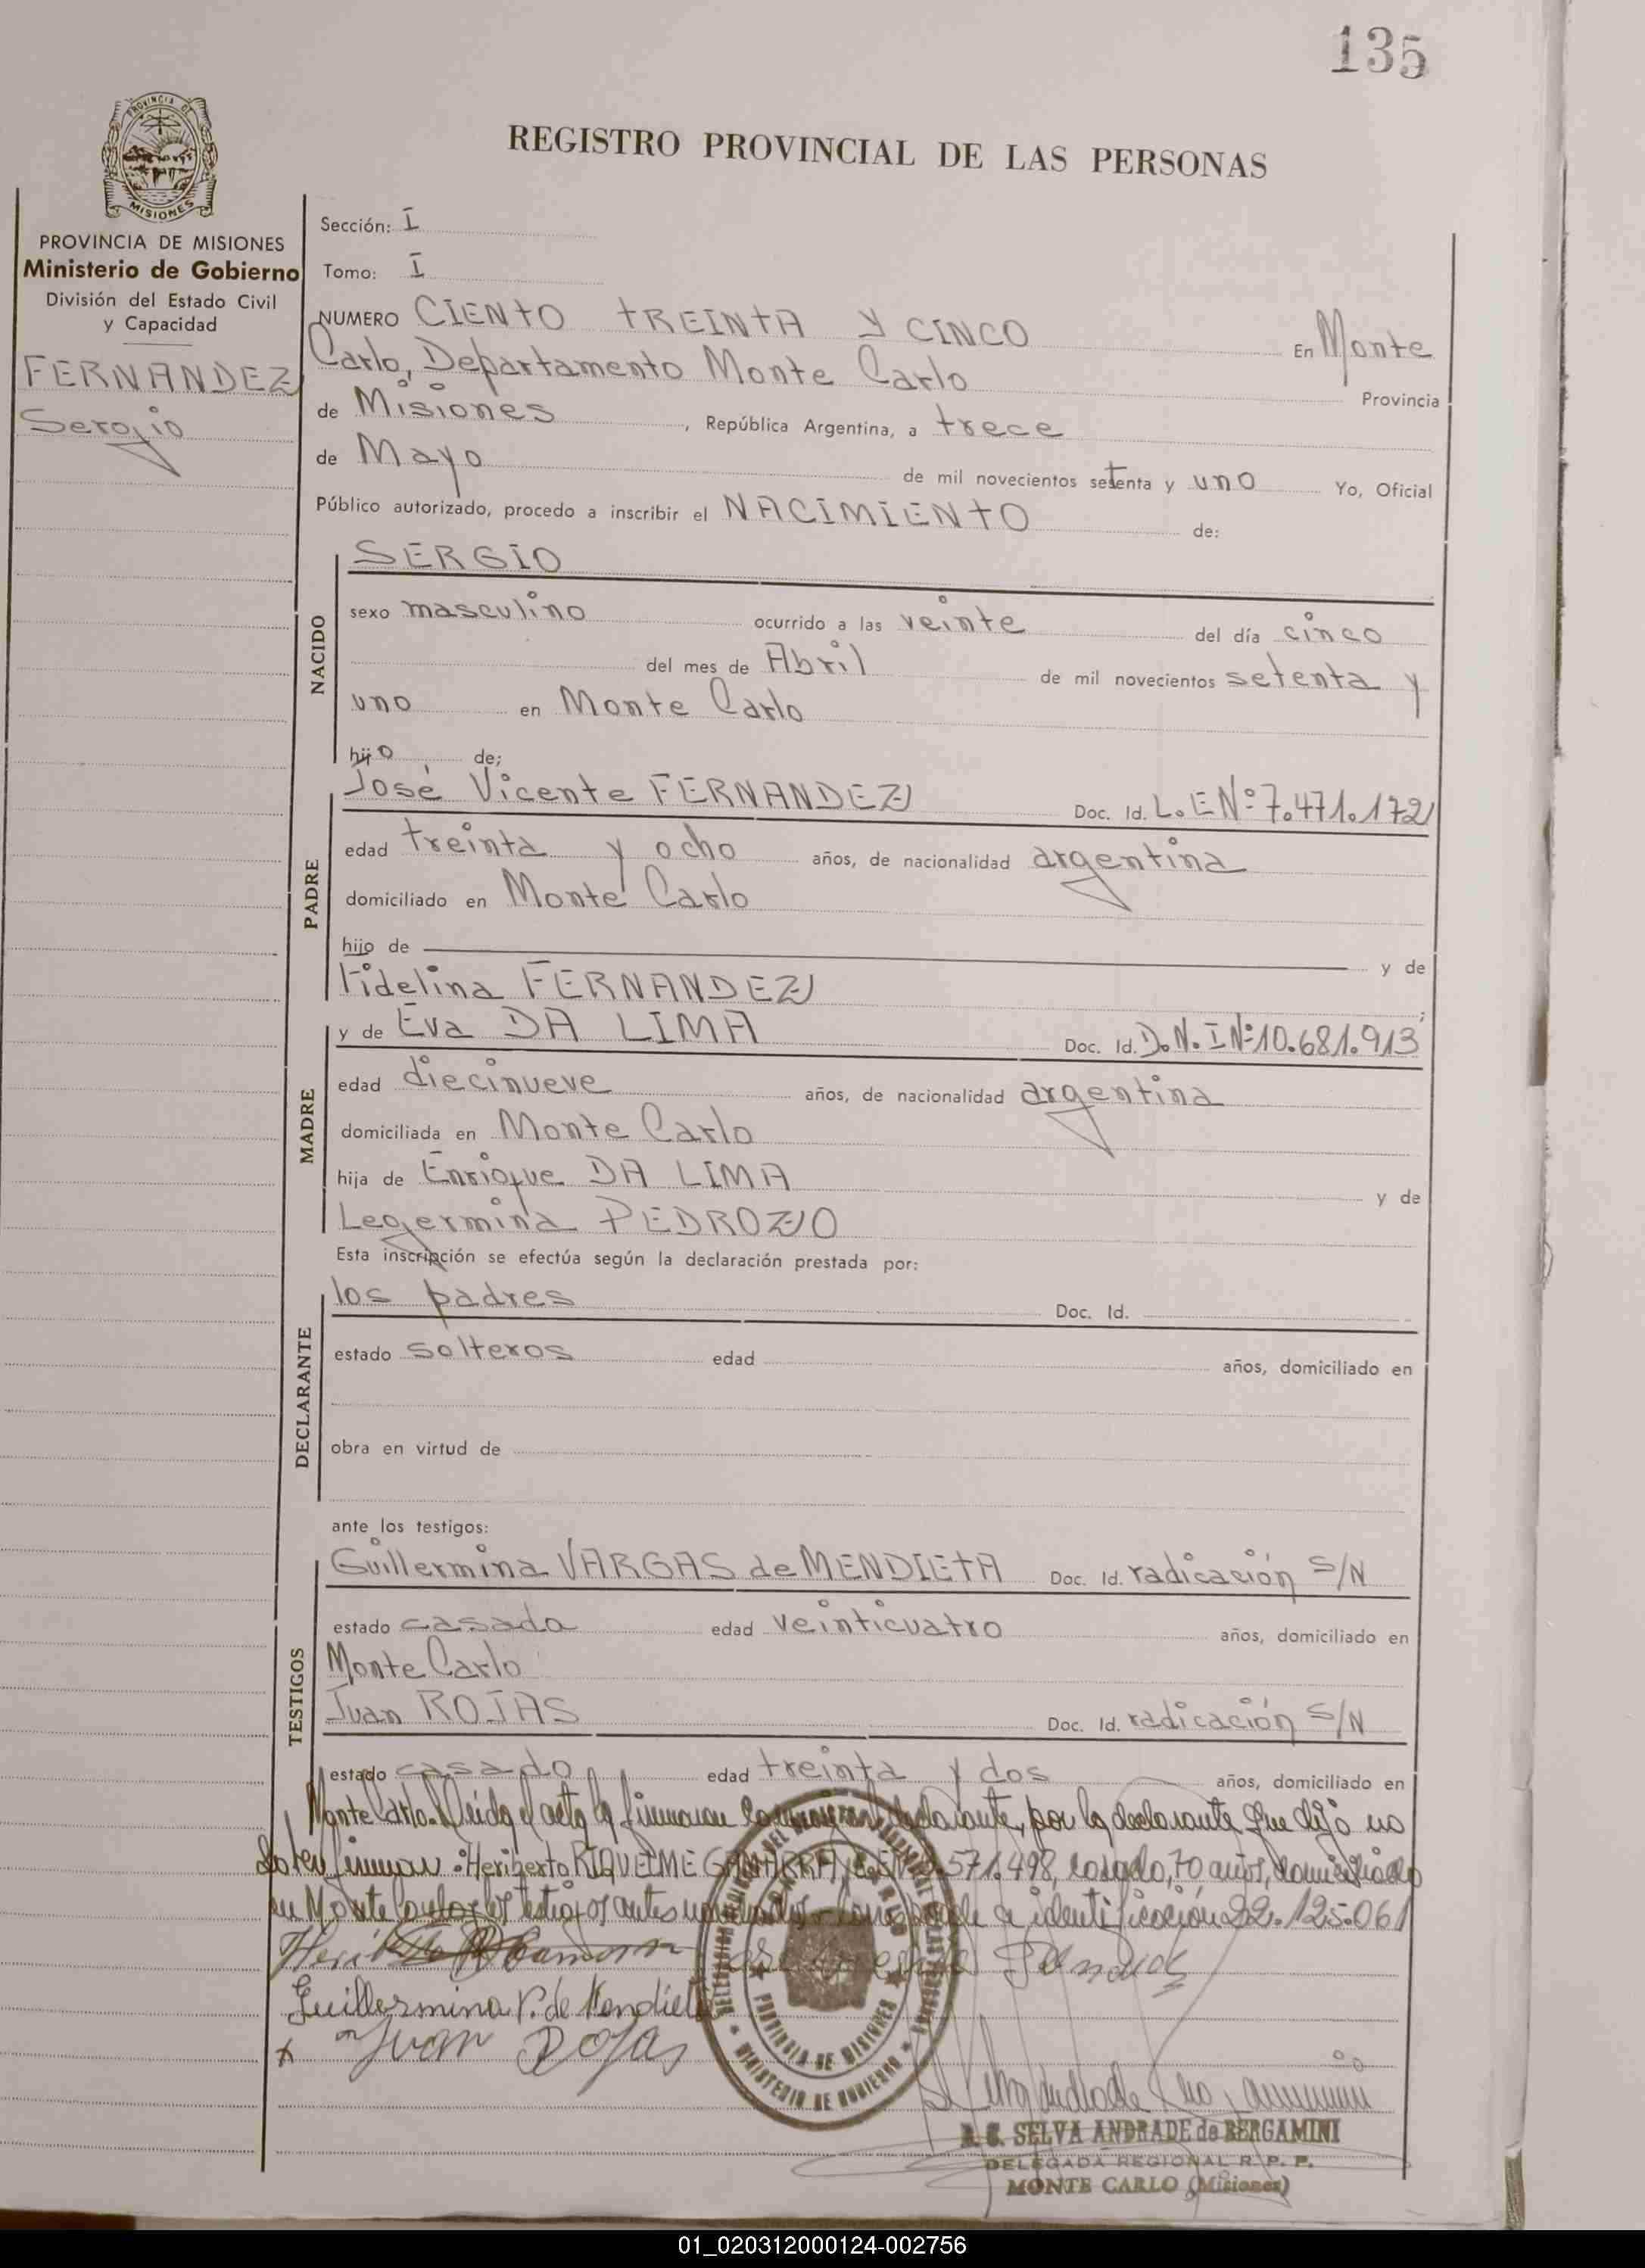 135
REGISTRO PROVINCIAL DE LAS PERSONAS
PROVINCIA DE
MISIONES
PROVINCIA DE MISIONES
Ministerio de Gobierno
División del Estado Civil
y Capacidad
FERNANDEZ
Sergio
Sección: I
Tomo: I
NUMERO CIENTO TREINTA Y CINCO En Monte
Carlo, Departamento Monte Carlo Provincia
de Misiones, República Argentina, a trece
de Mayo de mil novecientos setenta y uno Yo, Oficial
Público autorizado, procedo a inscribir el NACIMIENTO de:
NACIDO
SERGIO
sexo masculino ocurrido a las veinte del día cinco
del mes de Abril de mil novecientos setenta y
uno en Monte Carlo
hijo de;
PADRE
José Vicente FERNANDEZ Doc. Id. L.E Nº 7.471.172
edad treinta y ocho años, de nacionalidad argentina
domiciliado en Monte Carlo
hijo de y de
Fidelina FERNANDEZ ;
MADRE
y de Eva DA LIMA Doc. Id. D.N.I Nº 10.681.913
edad diecinueve años, de nacionalidad argentina
domiciliada en Monte Carlo
hija de Enrique DA LIMA y de
Legermina PEDROZO
Esta inscripción se efectúa según la declaración prestada por:
DECLARANTE
los padres Doc. Id.
estado solteros edad años, domiciliado en
obra en virtud de
ante los testigos:
TESTIGOS
Guillermina VARGAS de MENDIETA Doc. Id. radicación S/N
estado casada edad veinticuatro años, domiciliado en
Monte Carlo
Juan ROJAS Doc. Id. radicación S/N
estado casado edad treinta y dos años, domiciliado en
Monte Carlo. Leída el acta la firman declarante, por la declarante que dijo no
saber firmar: Heriberto RIQUELME GAMARRA, 571.498, casado, 70 años, domiciliado
en Monte Carlo, los testigos antes nombrados. Corresponde a identificación 22.125.061
Jose Vicente Fernandez
Guillermina V. de Mendieta
Juan Rojas
PROVINCIA DE MISIONES
MINISTERIO DE GOBIERNO
SELVA ANDRADE de BERGAMINI
DELEGADA REGIONAL R. P. P.
MONTE CARLO (Misiones)
01_020312000124-002756